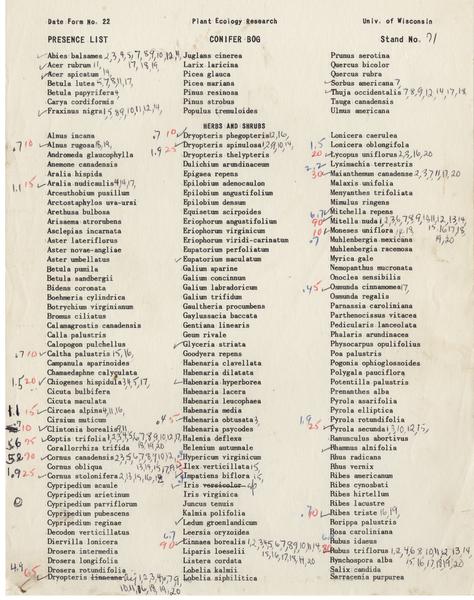 Date Form No. 22 Plant Ecology Research Univ. of Wisconsin
PRESENCE LIST CONIFER BOG Stand No. 71
Abies balsamea
Acer rubrum
Acer spicatum
Betula lutea
Betula papyrifera
Carya cordiformis
Fraxinus nigra
Juglans cinerea
Larix laricina
Picea glauca
Picea mariana
Pinus resinosa
Pinus strobus
Populus tremuloides
Prunus serotina
Quercus bicolor
Quercus rubra
Sorbus americana 7
Thuja occidentalis 7, 8, 9, 12, 14, 17, 18
Tsuga canadensis
Ulmus americana
HERBS AND SHRUBS
Alnus incana
.7 10 Alnus rugosa
Andromeda glaucophylla
Anemone canadensis
Aralia hispida
1.1 15 Aralia nudicaulis
Arceuthobium pusillum
Arctostaphylos uva-ursi
Arethusa bulbosa
Arisaema atrorubens
Asclepias incarnata
Aster lateriflorus
Aster novae-angliae
Aster umbellatus
Betula pumila
Betula sandbergii
Bidens coronata
Boehmeria cylindrica
Botrychium virginianum
Bromus ciliatus
Calamagrostis canadensis
Calla palustris
Calopogon pulchellus
.7 10 Caltha palustris 15, 16,
Campanula aparinoides
Chamaedaphne calyculata
1.5 20 Chiogenes hispidula 3, 4, 5, 17,
Cicuta bulbifera
Cicuta maculata
1.1 15 Circaea alpina 9, 11, 16,
Cirsium muticum
Clintonia borealis
Coptis trifolia
Corallorrhiza trifida
Cornus canadensis
Cornus obliqua
1.9 25 Cornus stolonifera
Cypripedium acaule
Cypripedium arietinum
Cypripedium parviflorum
Cypripedium pubescens
Cypripedium reginae
Decodon verticillatus
Diervilla lonicera
Drosera intermedia
Drosera longifolia
Drosera rotundifolia
4.9 65 Dryopteris
.7 10 Dryopteris phegopteris 12, 16,
1.9 25 Dryopteris spinulosa 1, 2, 9, 10, 14,
Dryopteris thelypteris
Dulichium arundinaceum
Epigaea repens
Epilobium adenocaulon
Epilobium angustifolium
Epilobium densum
Equisetum scirpoides
Eriophorum angustifolium
Eriophorum virginicum
Eriophorum viridi-carinatum
Eupatorium perfoliatum
Eupatorium maculatum
Galium aparine
Galium concinnum
Galium labradoricum
Galium trifidum
Gaultheria procumbens
Gaylussacia baccata
Gentiana linearis
Geum rivale
Glyceria striata
Goodyera repens
Habenaria clavellata
Habenaria dilatata
Habenaria hyperborea
Habenaria lacera
Habenaria leucophaea
Habenaria media
.4 5 Habenaria obtusata 3,
Habenaria psycodes
Halenia deflexa
Helenium autumnale
Hypericum virginicum
Ilex verticillata 15,
Impatiens biflora 15,
Iris versicolor sp
Iris virginica
Juncus tenuis
Kalmia polifolia
Ledum groenlandicum
Leersia oryzoides
6.7 90 Linnaea borealis
Liparis loeselii
Listera cordata
Lobelia kalmii
Lobelia siphilitica
Lonicera caerulea
Lonicera oblongifolia
1.5 20 Lycopus uniflorus 2, 3, 16, 20
Lysimachia terrestris
2.2 30 Maianthemum canadense 2, 3, 7, 11, 17, 20
Malaxis unifolia
Menyanthes trifoliata
Mimulus ringens
Mitchella repens
6.7 90 Mitella nuda
10 Moneses uniflora 14, 19,
.7 Muhlenbergia mexicana
Muhlenbergia racemosa
Myrica gale
Nemopanthus mucronata
Onoclea sensibilis
.4 5 Osmunda cinnamomea 17,
Osmunda regalis
Parnassia caroliniana
Parthenocissus vitacea
Pedicularis lanceolata
Phalaris arundinacea
Physocarpus opulifolius
Poa palustris
Pogonia ophioglossoides
Polygala pauciflora
Potentilla palustris
Prenanthes alba
Pyrola asarifolia
Pyrola elliptica
1.9 Pyrola rotundifolia
25 Pyrola secunda 1, 3, 10, 12, 15,
Ranunculus abortivus
Rhamnus alnifolia
Rhus radicans
Rhus vernix
Ribes americanum
Ribes cynosbati
Ribes hirtellum
Ribes lacustre
Ribes triste 16, 19,
Rorippa palustris
Rosa caroliniana
Rubus idaeus
Rubus triflorus
Rynchospora alba
Salix candida
Sarracenia purpurea